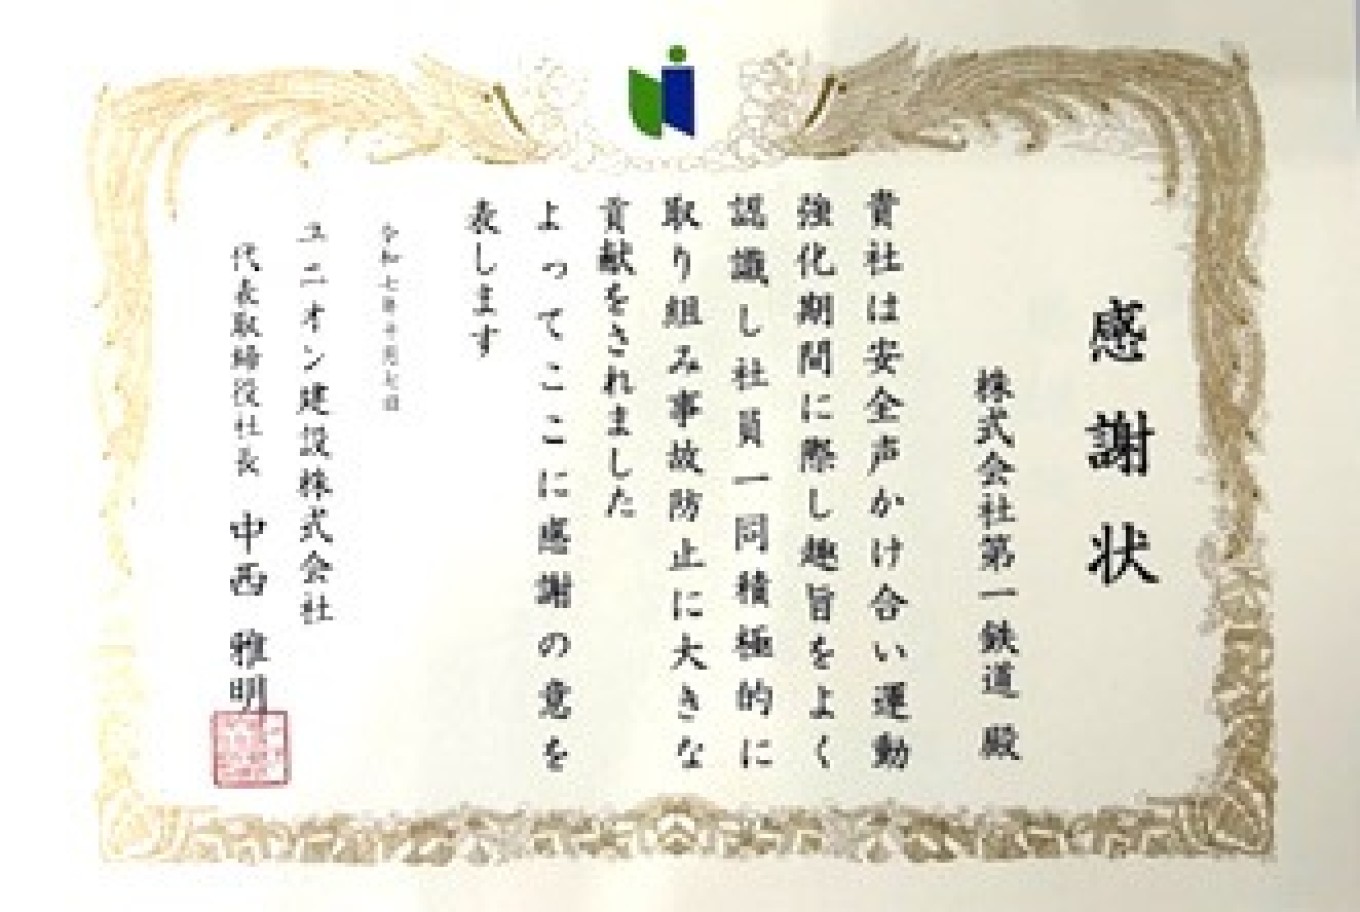 感謝状
株式会社第一鉄道 殿
貴社は安全声かけ合い運動
強化期間に際し趣旨をよく
認識し社員一同積極的に
取り組み事故防止に大きな
貢献をされました
よってここに感謝の意を
表します
令和七年十月七日
ユニオン建設株式会社
代表取締役社長 中西 雅明